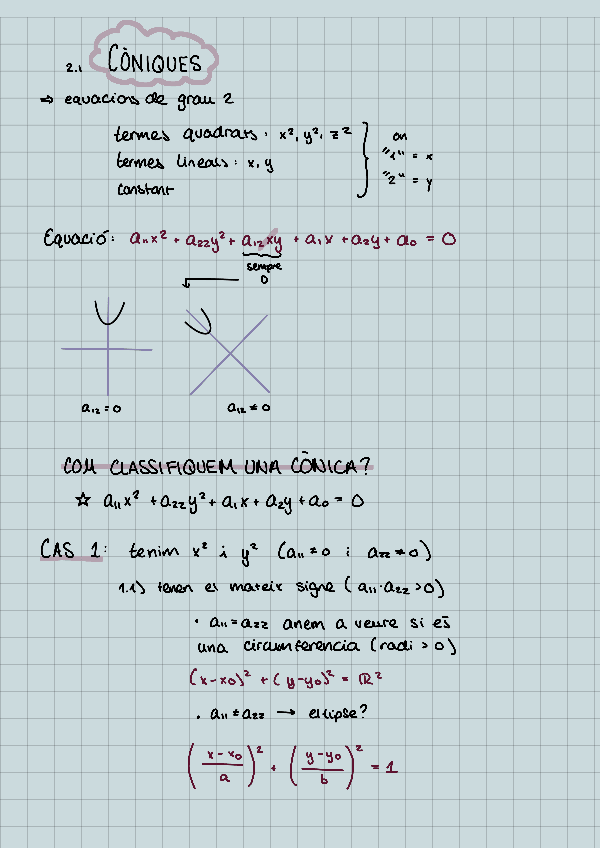 2.1 CÒNIQUES
⇒ equacions de grau 2
termes quadrats: x², y², z²
termes lineals: x, y
constant
on
"1" = x
"2" = y
Equació: a₁₁x² + a₂₂y² + a₁₂xy + a₁x + a₂y + a₀ = 0
sempre
0
a₁₂ = 0
a₁₂ ≠ 0
COM CLASSIFIQUEM UNA CÒNICA?
☆ a₁₁x² + a₂₂y² + a₁x + a₂y + a₀ = 0
CAS 1: tenim x² i y² (a₁₁ ≠ 0 i a₂₂ ≠ 0)
1.1) tenen el mateix signe (a₁₁·a₂₂ > 0)
· a₁₁ = a₂₂ anem a veure si és
una circumferencia (radi > 0)
(x-x₀)² + (y-y₀)² = R²
· a₁₁ ≠ a₂₂ → el·lipse?
((x-x₀)/a)² + ((y-y₀)/b)² = 1